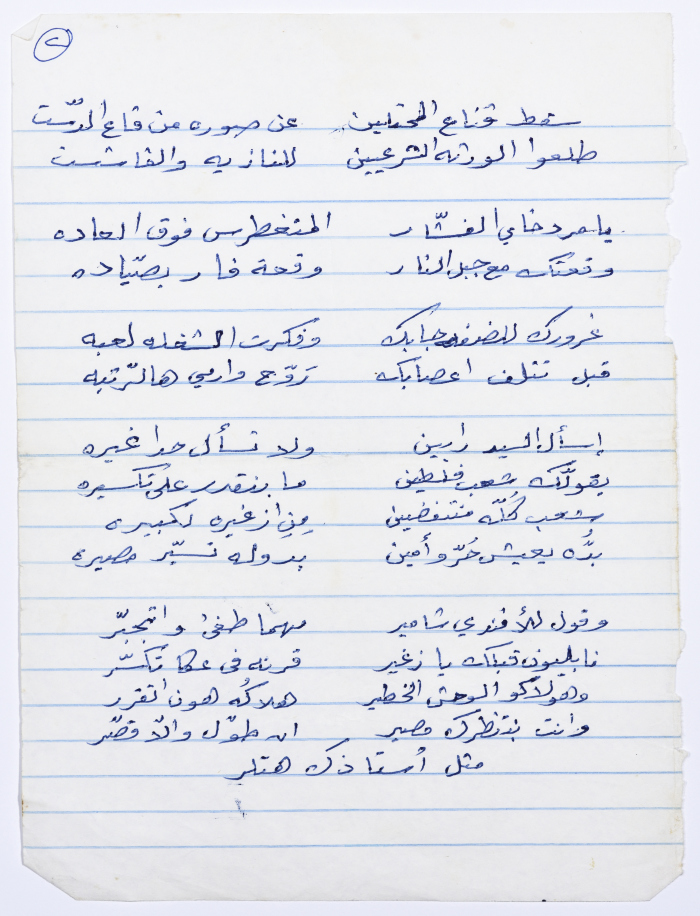 ٢
سقط قناع المحتلين عن صوره من قاع الدّست
طلعوا الورثه الشرعيين للنازيه والفاشست
يا مردخاي الفشّار المتغطرس فوق العاده
وقعتك مع جبل النار وقعة فار بصيّاده
غرورك للضفه جابك وفكرت الشغله لعبه
قبل تتلف اعصابك رَوّح وارمي هالرّتبه
إسأل السيد رابين ولا تسأل حدا غيره
بقولّك شعب فلسطين ما بنقدر على تكسيره
شعب كُلّه منتفضين مِن ازغيره لكبيره
بدُّه يعيش حُرّ وأمين بدوله تسيّر مصيره
وقول للأفندي شامير مهما طغىٰ واتجبّر
نابليون قبلك يا زغير قرنه في عكا تكسّر
وهولاكو الوحش الخطير هلاكُه هون اتقرر
وانت بنتظرك مصير ان طوّل والاّ قصّر
مثل أستاذك هتلر